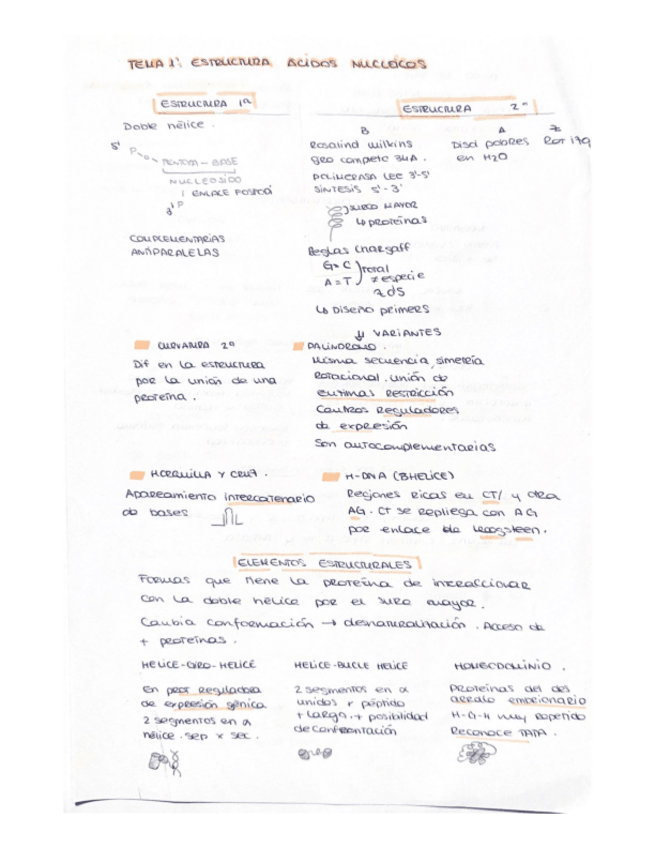 TEMA 1: ESTRUCTURA ÁCIDOS NUCLEICOS
ESTRUCTURA 1ª
Doble hélice.
5'
P
PENTOSA - BASE
NUCLEOSIDO
ENLACE FOSFODI
3' P
COMPLEMENTARIAS
ANTIPARALELAS
ESTRUCTURA 2ª
B
Rosalind Wilkins
giro completo 34A.
POLIMERASA LEE 3'-5'
SÍNTESIS 5'-3'
SURCO MAYOR
↳ proteínas
Reglas Chargaff
G=C
A=T
total
≠ especie
↳ Diseño primers
A
Disol pobres
en H2O
Z
Rot izq
↓ VARIANTES
CURVATURA 2ª
Dif en la estructura
por la unión de una
proteína.
PALINDROMO.
Misma secuencia, simetría
Rotacional. Unión de
enzimas RESTRICCIÓN
Centros Reguladores
de expresión
Son autocomplementarias
HORQUILLA Y CRUZ.
Apareamiento intercatenario
de bases
H-DNA (3HELICE)
Regiones Ricas en CT/ y otra
AG. CT se repliega con AG
por enlace de Hoogsteen.
ELEMENTOS ESTRUCTURALES
Formas que tiene la proteína de interaccionar
con la doble hélice por el surco mayor.
Cambia conformación → desnaturalización. Acceso de
+ proteínas.
HELICE-GIRO-HELICE
En prot reguladora
de expresión génica
2 segmentos en α
hélice. sep x sec.
HELICE-BUCLE HELICE
2 segmentos en α
unidos x péptido
+ largo. + posibilidad
de confrontación
HOMEODOMINIO.
Proteínas del des
arrollo embrionario
H-G-H muy repetido
Reconoce TATA.